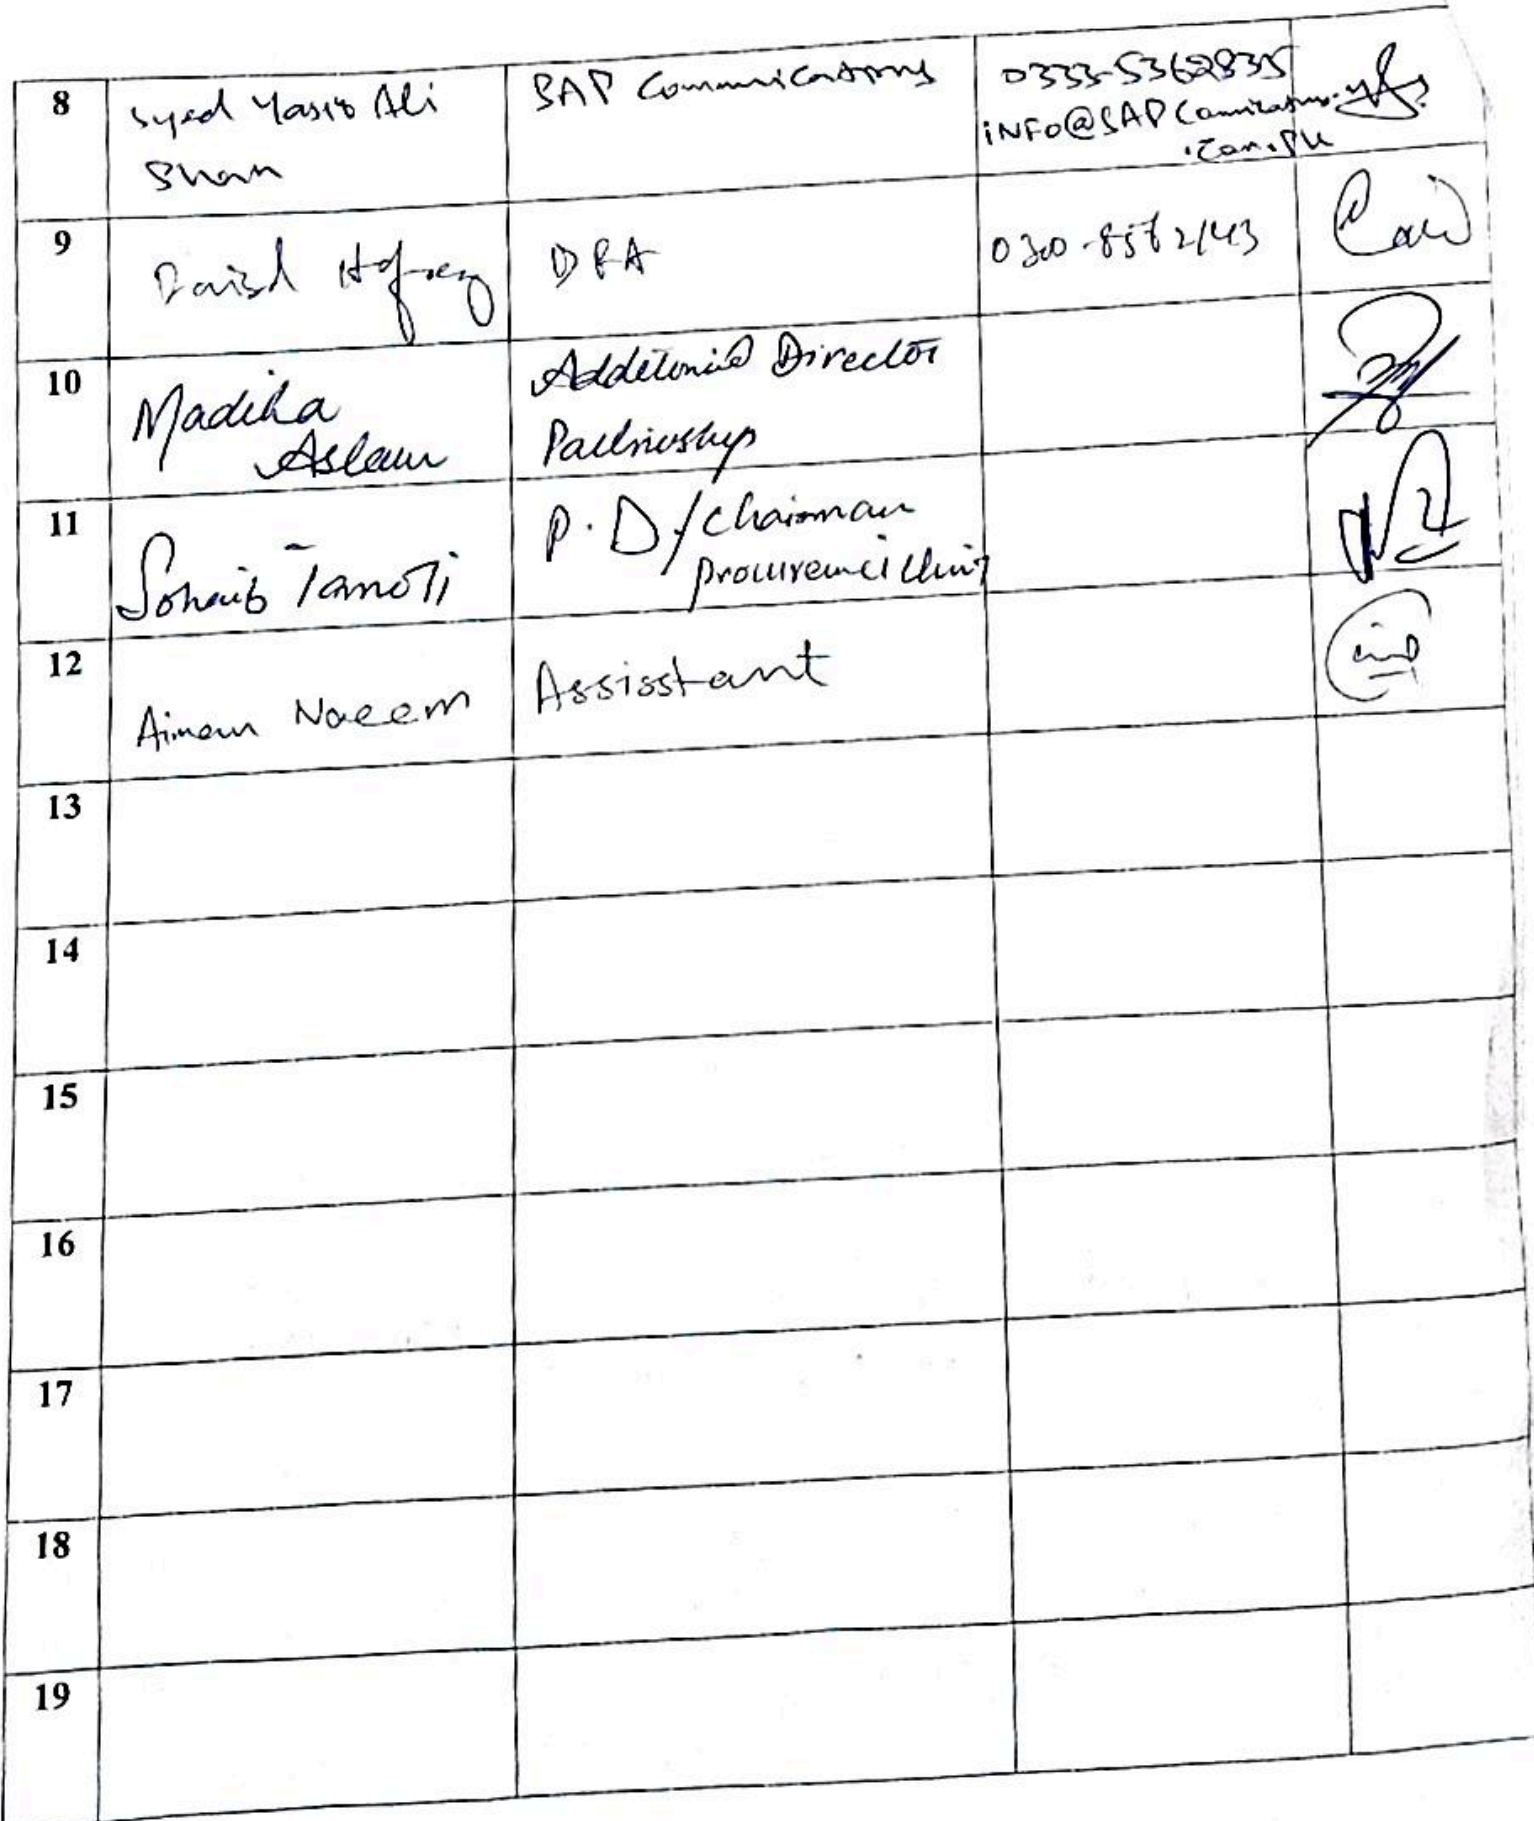 8 Syed Yasir Ali SAP Communications 0333-5362835
Shah INFO@SAPCommications
.com.pk
9 DPA 0300-8562143
10 Madiha Additional Director
Aslam Partnership
11 Sohaib Tanoli P.D/Chairman
Procurement Unit
12 Aimen Naeem Assisstant
13
14
15
16
17
18
19